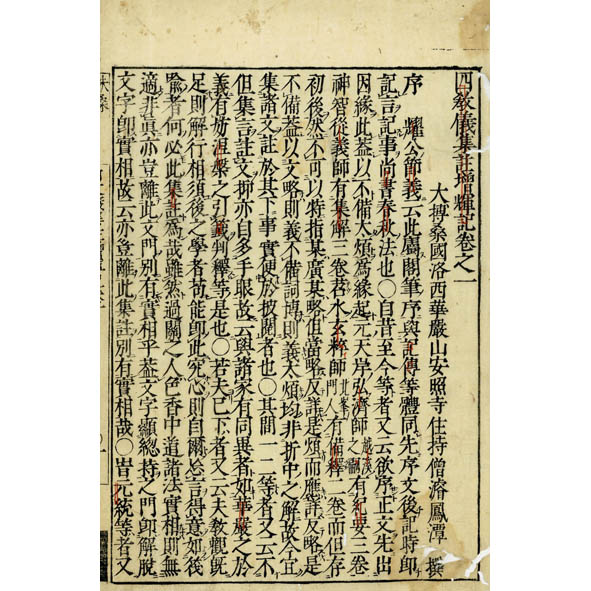 四教儀集註增輝記卷之一
大搏桑國洛西華嚴山安照寺住持僧濬鳳潭 撰
序 耀公節義云此屬閣筆序與記傳等體同先序文後記時卽
記言記事尚書春秋法也〇自昔至今等者又云欲序正文先出
因緣此蓋以不備太煩爲緣起元天岸弘濟師之嗣有紀要二卷
神智從義師有集解三卷若水玄粹師門人有備釋二卷而但存
初後然不可以特指某廣某略但當略反詳是煩而應詳反略是
不備蓋以文略則義不備詞博則義太煩均非折中之解故今宜
集諸文註於其下事實便於披閱者也〇其間一二等者又云不
但集言註文抑亦自多手眼故云與諸家有同異者如華嚴之於
義有妨涅槃之引義判釋等是也〇若夫已下者又云夫教觀旣
足則解行相須後之學者苟能卽此究心則自爾忘言得意如筏
喩者何必此集註爲哉雖然過關之人色香中道諸法實相則無
適非眞亦豈離此文門別有實相乎蓋文字顯總持之門卽解脫
文字卽實相故云亦豈離此集註別有實相哉〇豈元統等者又